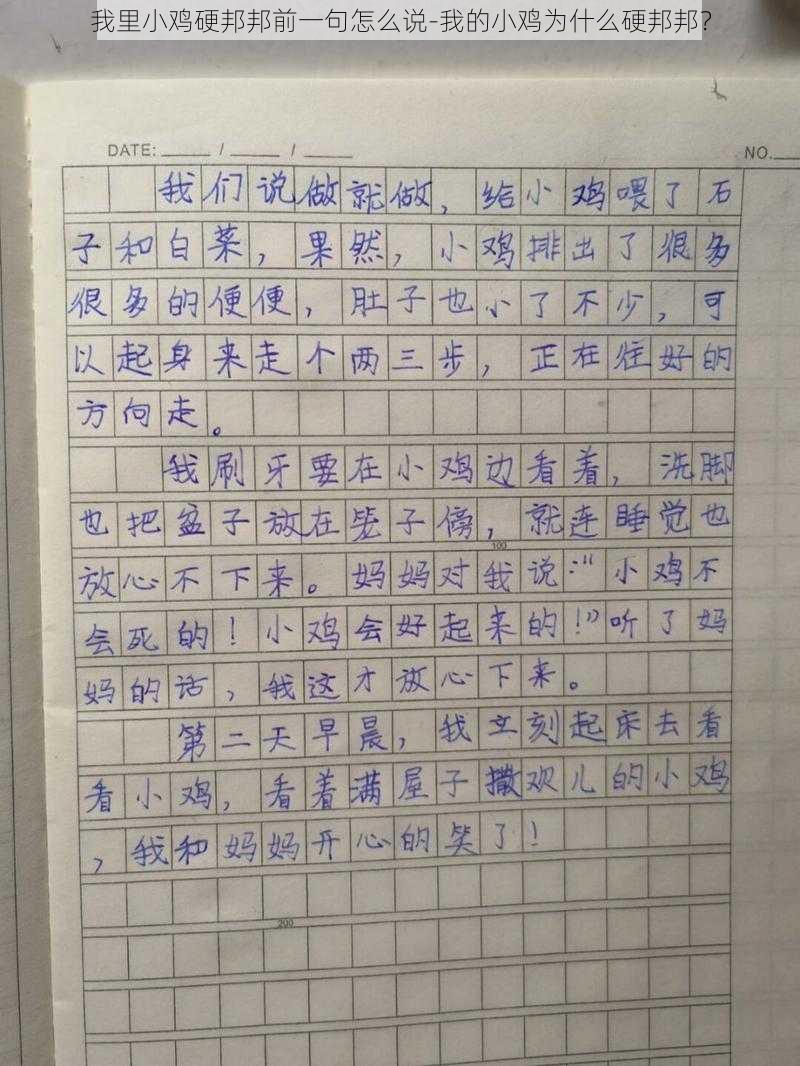 我里小鸡硬邦邦前一句怎么说-我的小鸡为什么硬邦邦?
DATE: / /
NO.
我们说做就做，给小鸡喂了石
子和白菜，果然，小鸡排出了很多
很多的便便，肚子也小了不少，可
以起身来走个两三步，正在往好的
方向走。
我刷牙要在小鸡边看着，洗脚
也把盆子放在笼子傍，就连睡觉也
100
放心不下来。妈妈对我说："小鸡不
会死的！小鸡会好起来的！"听了妈
妈的话，我这才放心下来。
第二天早晨，我立刻起床去看
看小鸡，看着满屋子撒欢儿的小鸡
，我和妈妈开心的笑了！
200